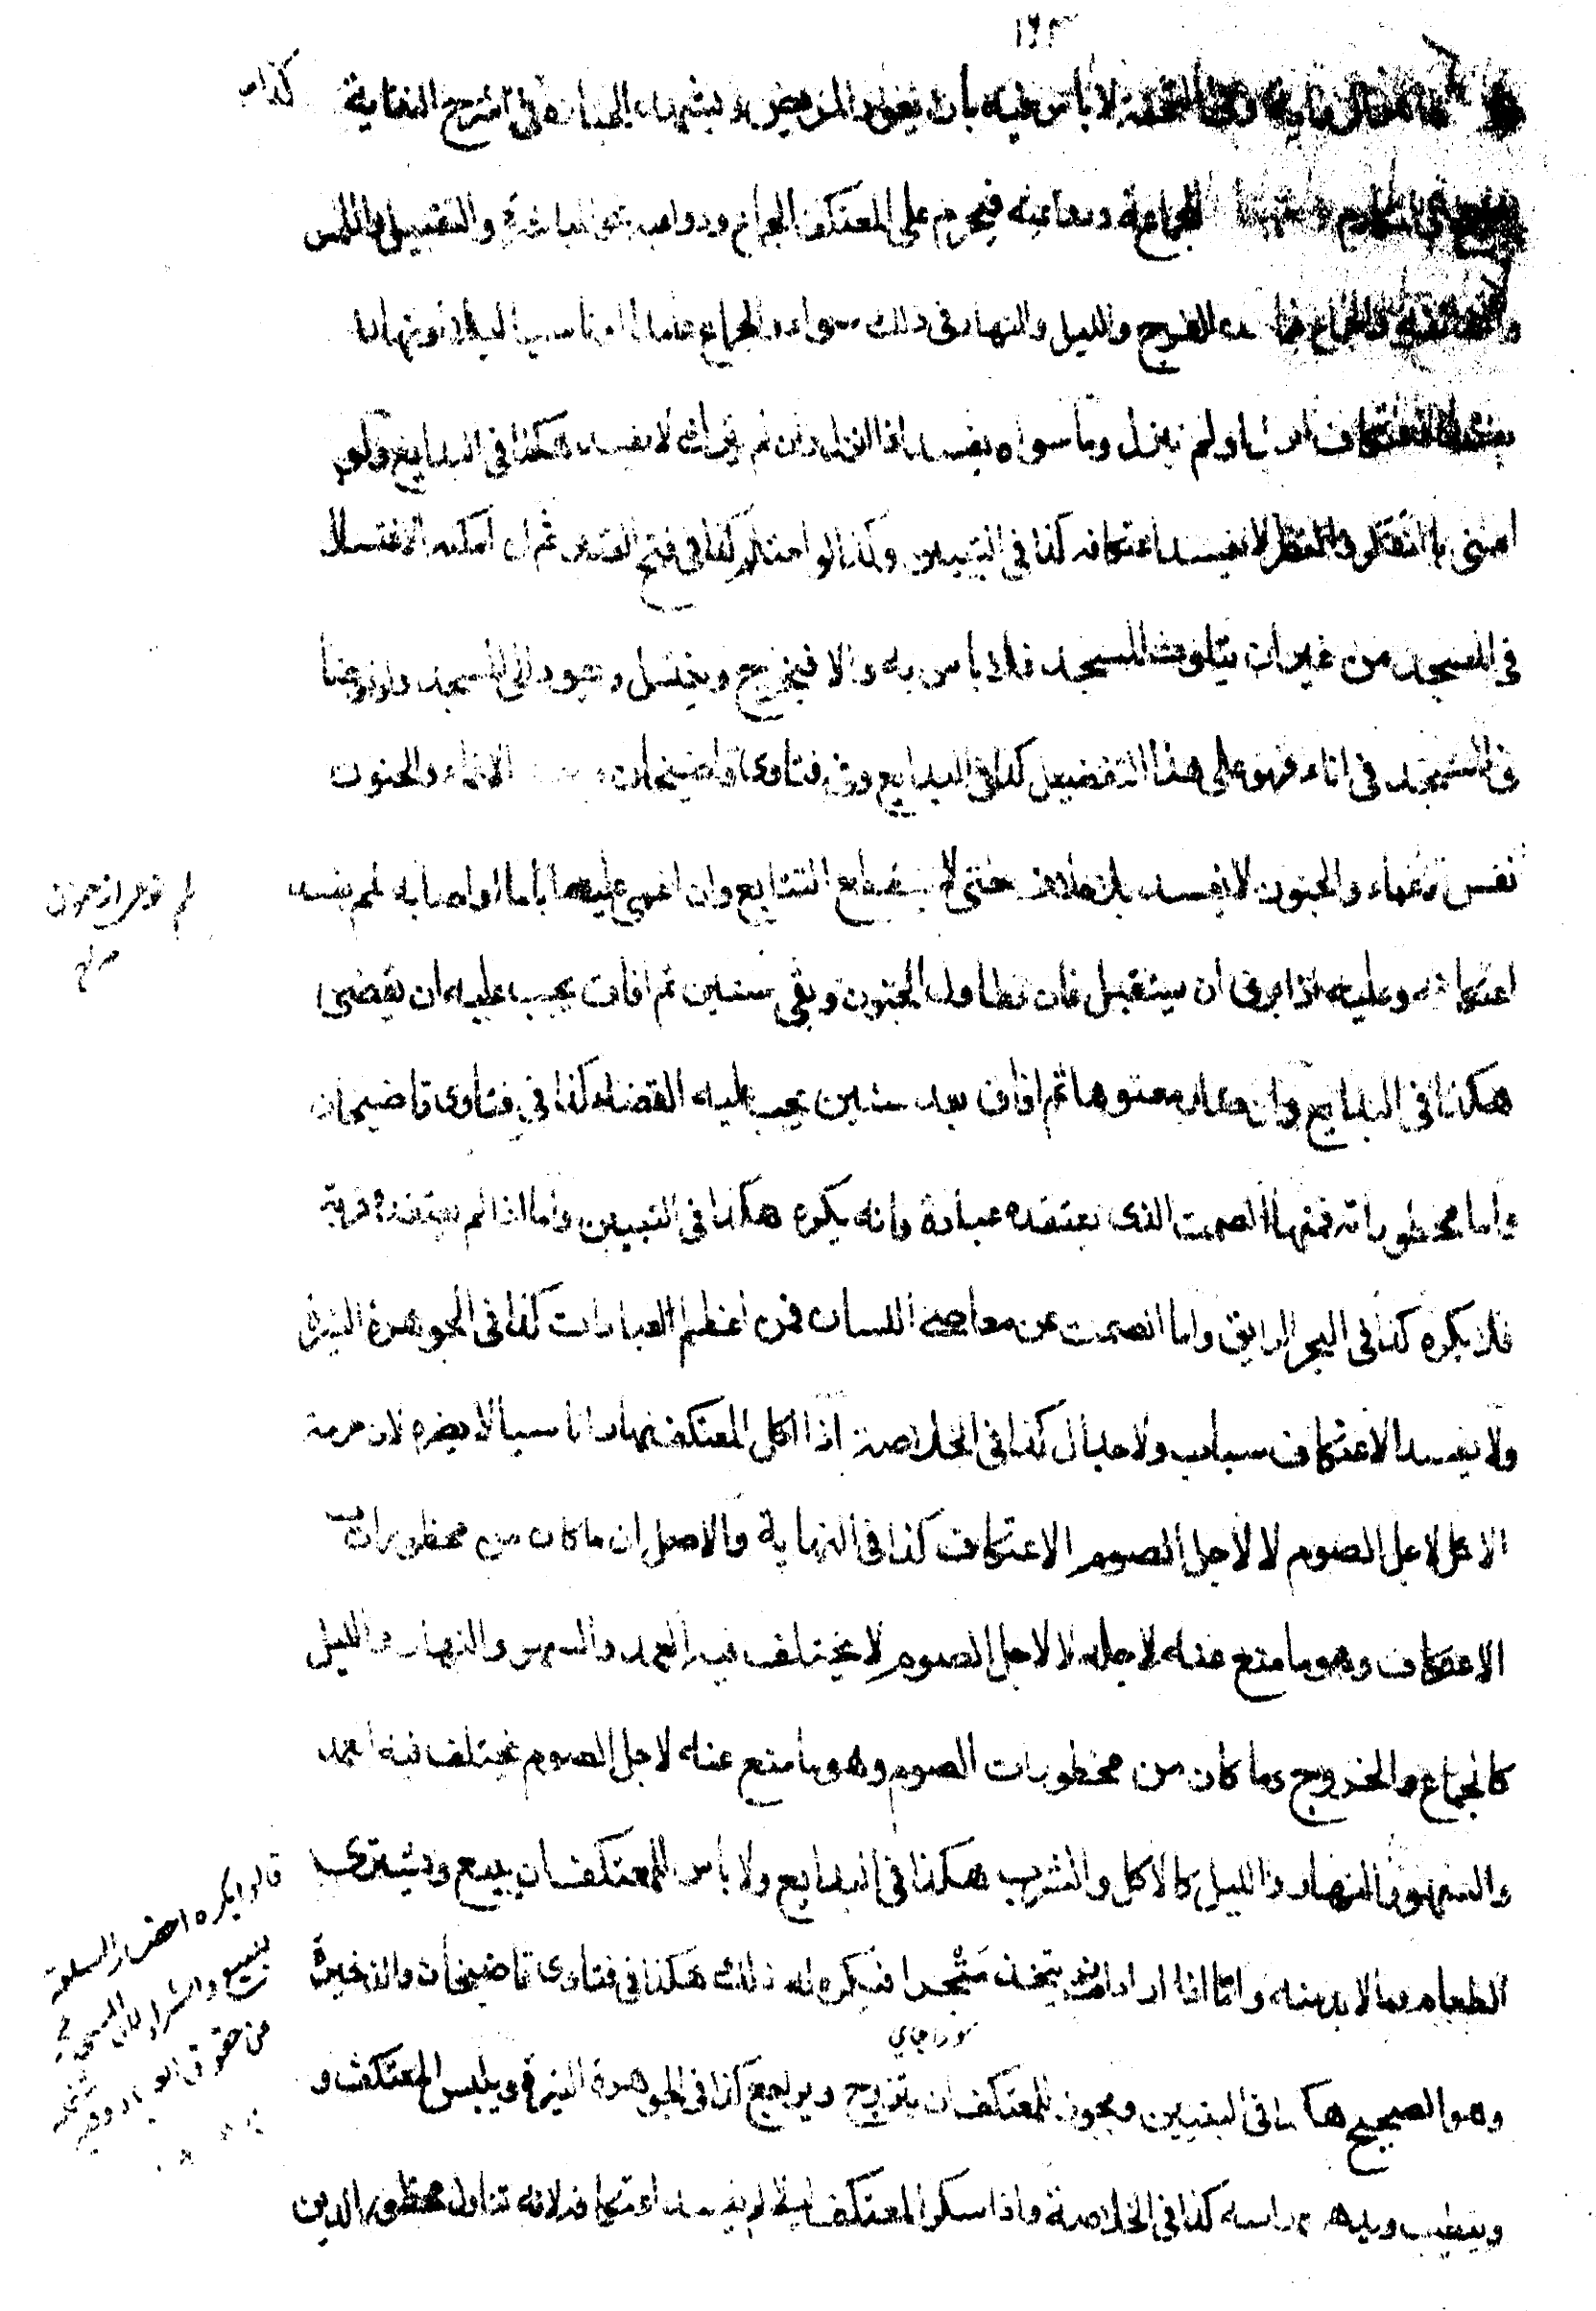 ١٩٣
لا بأس فيه بأن يعود المريض ويشهد الجنازة كذا في شرح النقاية
الجماع ودواعيه فيحرم على المعتكف الجماع ودواعيه نحو المباشرة والتقبيل واللمس
والمعانقة والجماع فيما دون الفرج والليل والنهار في ذلك سواء والجماع عامدا او ناسيا ليلا او نهارا
يفسد الاعتكاف انزل او لم ينزل وما سواه يفسد اذا انزل وان لم ينزل لا يفسد هكذا في البدايع ولو
امنى بالتفكر والنظر لا يفسد اعتكافه كذا في التبيين وكذا لو احتلم كذا في فتح القدير ثم ان امكنه الاغتسال
في المسجد من غير ان يتلوث المسجد فلا باس به والا فيخرج ويغتسل ويعود الى المسجد ولو توضأ
في المسجد في اناء فهو على هذا التفصيل كذا في البدايع وفي فتاوى قاضيخان الاغماء والجنون
نفس الاغماء والجنون لا يفسد بلا خلاف حتى لا ينقطع التتابع وان اغمي عليه اياما او اصابه لمم يفسد
اعتكافه وعليه اذا برئ ان يستقبل فان تطاول الجنون وبقي سنين ثم افاق يجب عليه ان يقضي
هكذا في البدايع وان صار معتوها ثم افاق بعد سنين يجب عليه القضاء كذا في فتاوى قاضيخان
واما محظوراته فمنها الصمت الذي يعتقده عبادة فانه يكره هكذا في التبيين واما اذا لم يعتقده قربة
فلا يكره كذا في البحر الرايق واما الصمت عن معاصي اللسان فمن اعظم العبادات كذا في الجوهرة النيرة
ولا يفسد الاعتكاف سباب ولا جدال كذا في الخلاصة اذا اكل المعتكف نهارا ناسيا لا يضره لان حرمة
الاكل لاجل الصوم لا لاجل الصوم الاعتكاف كذا في النهاية والاصل ان ما كان من محظورات
الاعتكاف وهو ما منع عنه لاجله لا لاجل الصوم لا يختلف فيه العمد والسهو والنهار والليل
كالجماع والخروج وما كان من محظورات الصوم وهو ما منع عنه لاجل الصوم يختلف فيه العمد
والسهو والنهار والليل كالاكل والشرب هكذا في البدايع ولا باس للمعتكف ان يبيع ويشترى
الطعام وما لا بد منه واما اذا اراد ان يتخذ متجرا فيكره له ذلك هكذا في فتاوى قاضيخان والذخيرة
وهو الصحيح هكذا في التبيين ويجوز للمعتكف ان يتزوج ويراجع كذا في الجوهرة النيرة ويلبس المعتكف و
ويتطيب ويدهن راسه كذا في الخلاصة واذا سكر المعتكف ليلا لم يفسد اعتكافه لانه تناول محظور الدين
قالوا يكره احضار السلعة
للبيع والشراء لان المسجد
من حقوق العباد وفيه